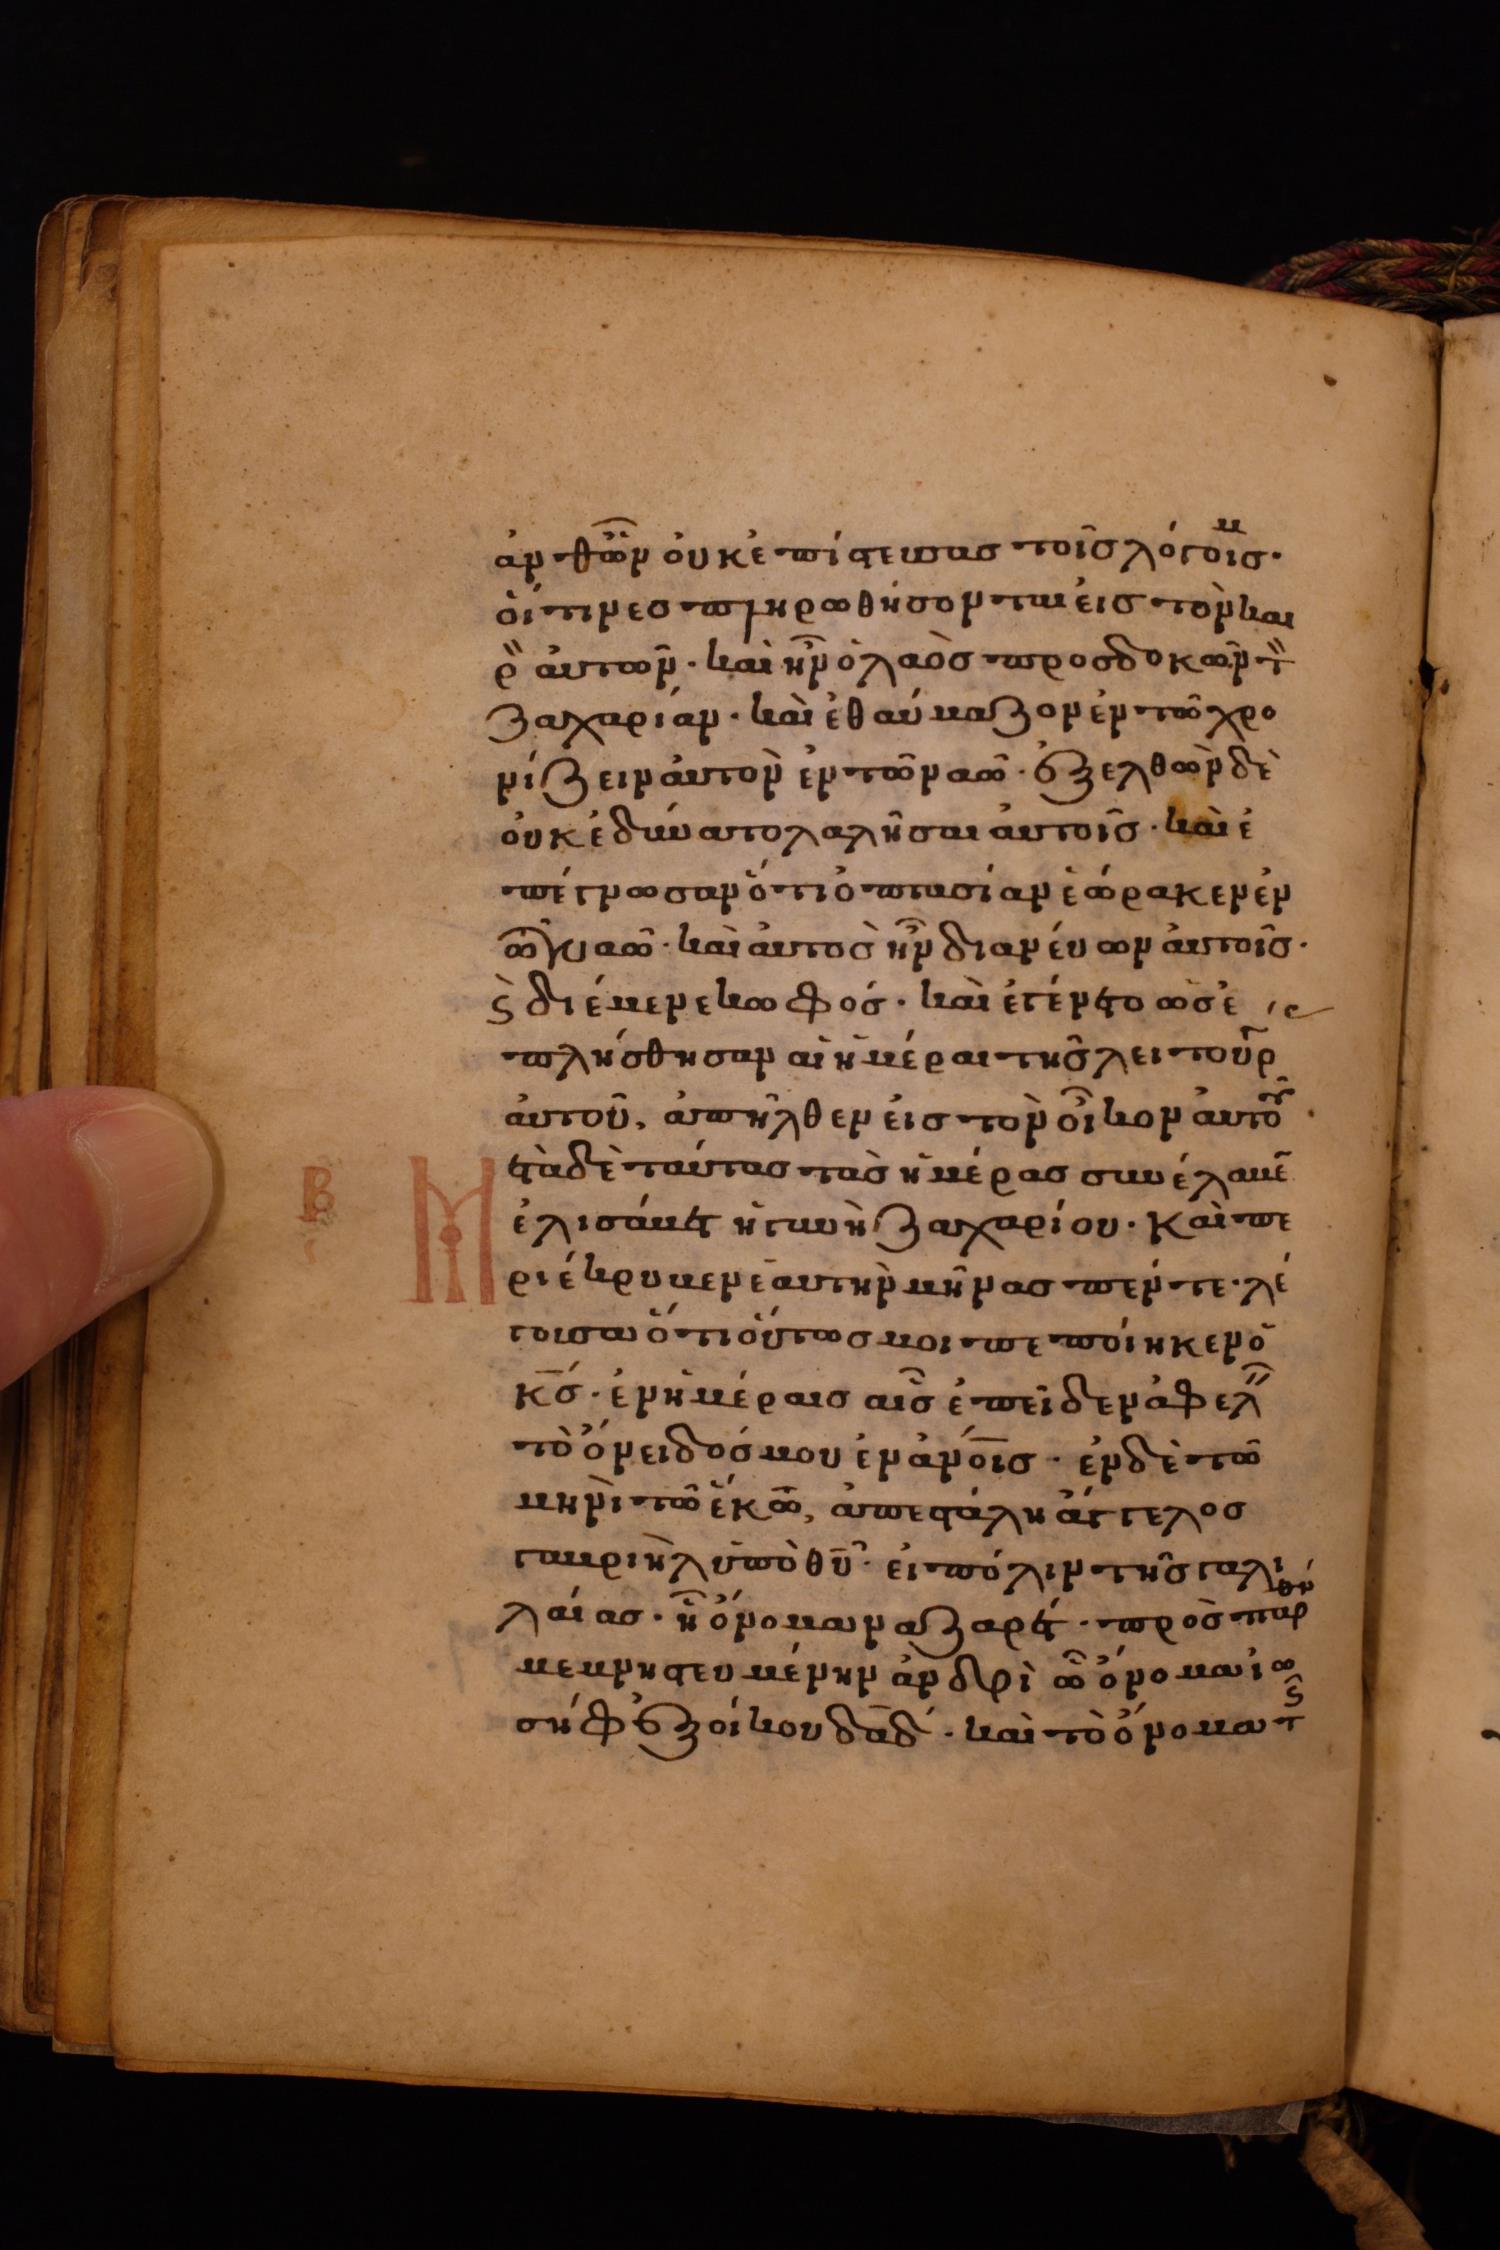 ἀνθῶν οὐκ ἐπίστευσας τοῖς λόγοις μ
οἵτινες πληρωθήσονται εἰς τὸν και
ρ αὐτῶν· καὶ ἦν ὁ λαὸς προσδοκῶν τ
ζαχαρίαν· καὶ ἐθαύμαζον ἐν τῶ χρο
νίζειν αὐτὸν ἐν τῶ ναῶ· ἐξελθὼν δὲ
οὐκ ἐδύνατο λαλῆσαι αὐτοῖς· καὶ ἐ
πέγνωσαν ὅτι ὀπτασίαν ἑώρακεν ἐν
τῶ ναῶ· καὶ αὐτὸς ἦν διανεύων αὐτοῖς·
ϗ διέμενε κωφός· καὶ ἐγένετο ὡς ἐ
πλήσθησαν αἱ ἡμέραι τῆς λειτουρ
αὐτοῦ, ἀπῆλθεν εἰς τὸν οἶκον αὐτοῦ·
Β Μετὰ δὲ ταύτας τὰς ἡμέρας συνέλαβε
ἐλισάβετ ἡ γυνὴ ζαχαρίου· καὶ πε
ριέκρυβεν ἑαυτὴν μῆνας πέντε· λέ
γουσα ὅτι οὕτως μοι πεποίηκεν ὁ
κς· ἐν ἡμέραις αἷς ἐπεῖδεν ἀφελ
τὸ ὄνειδός μου ἐν ἀνοις· ἐν δὲ τῶ
μηνὶ τῶ ἕκτω, ἀπεστάλη ἄγγελος
γαβριὴλ ὑπὸ θυ· εἰ πόλιν τῆς γαλι
λαίας· ἧ ὄνομα ναζαρέτ· πρὸς παρθέν
μεμνηστευμένην ἀνδρὶ ὧ ὄνομα ἰω
σὴφ ἐξ οἴκου δαδ· καὶ τὸ ὄνομα τῆς